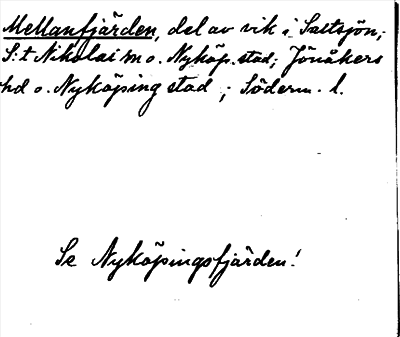 Mellanfjärden, del av vik i Saltsjön;
S:t Nikolai m o. Nyköp. stad; Jönåkers
hd o. Nyköping stad ; Söderm. l.
Se Nyköpingsfjärden!